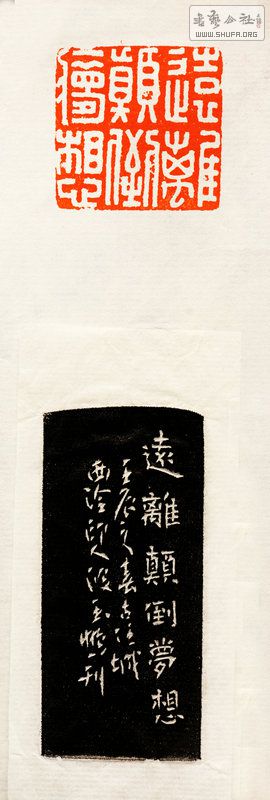 书艺公社
WWW.SHUFA.ORG
遠離
顛倒
夢想
遠離顛倒夢想
壬辰之春城
西泠印人段玉鵬刊